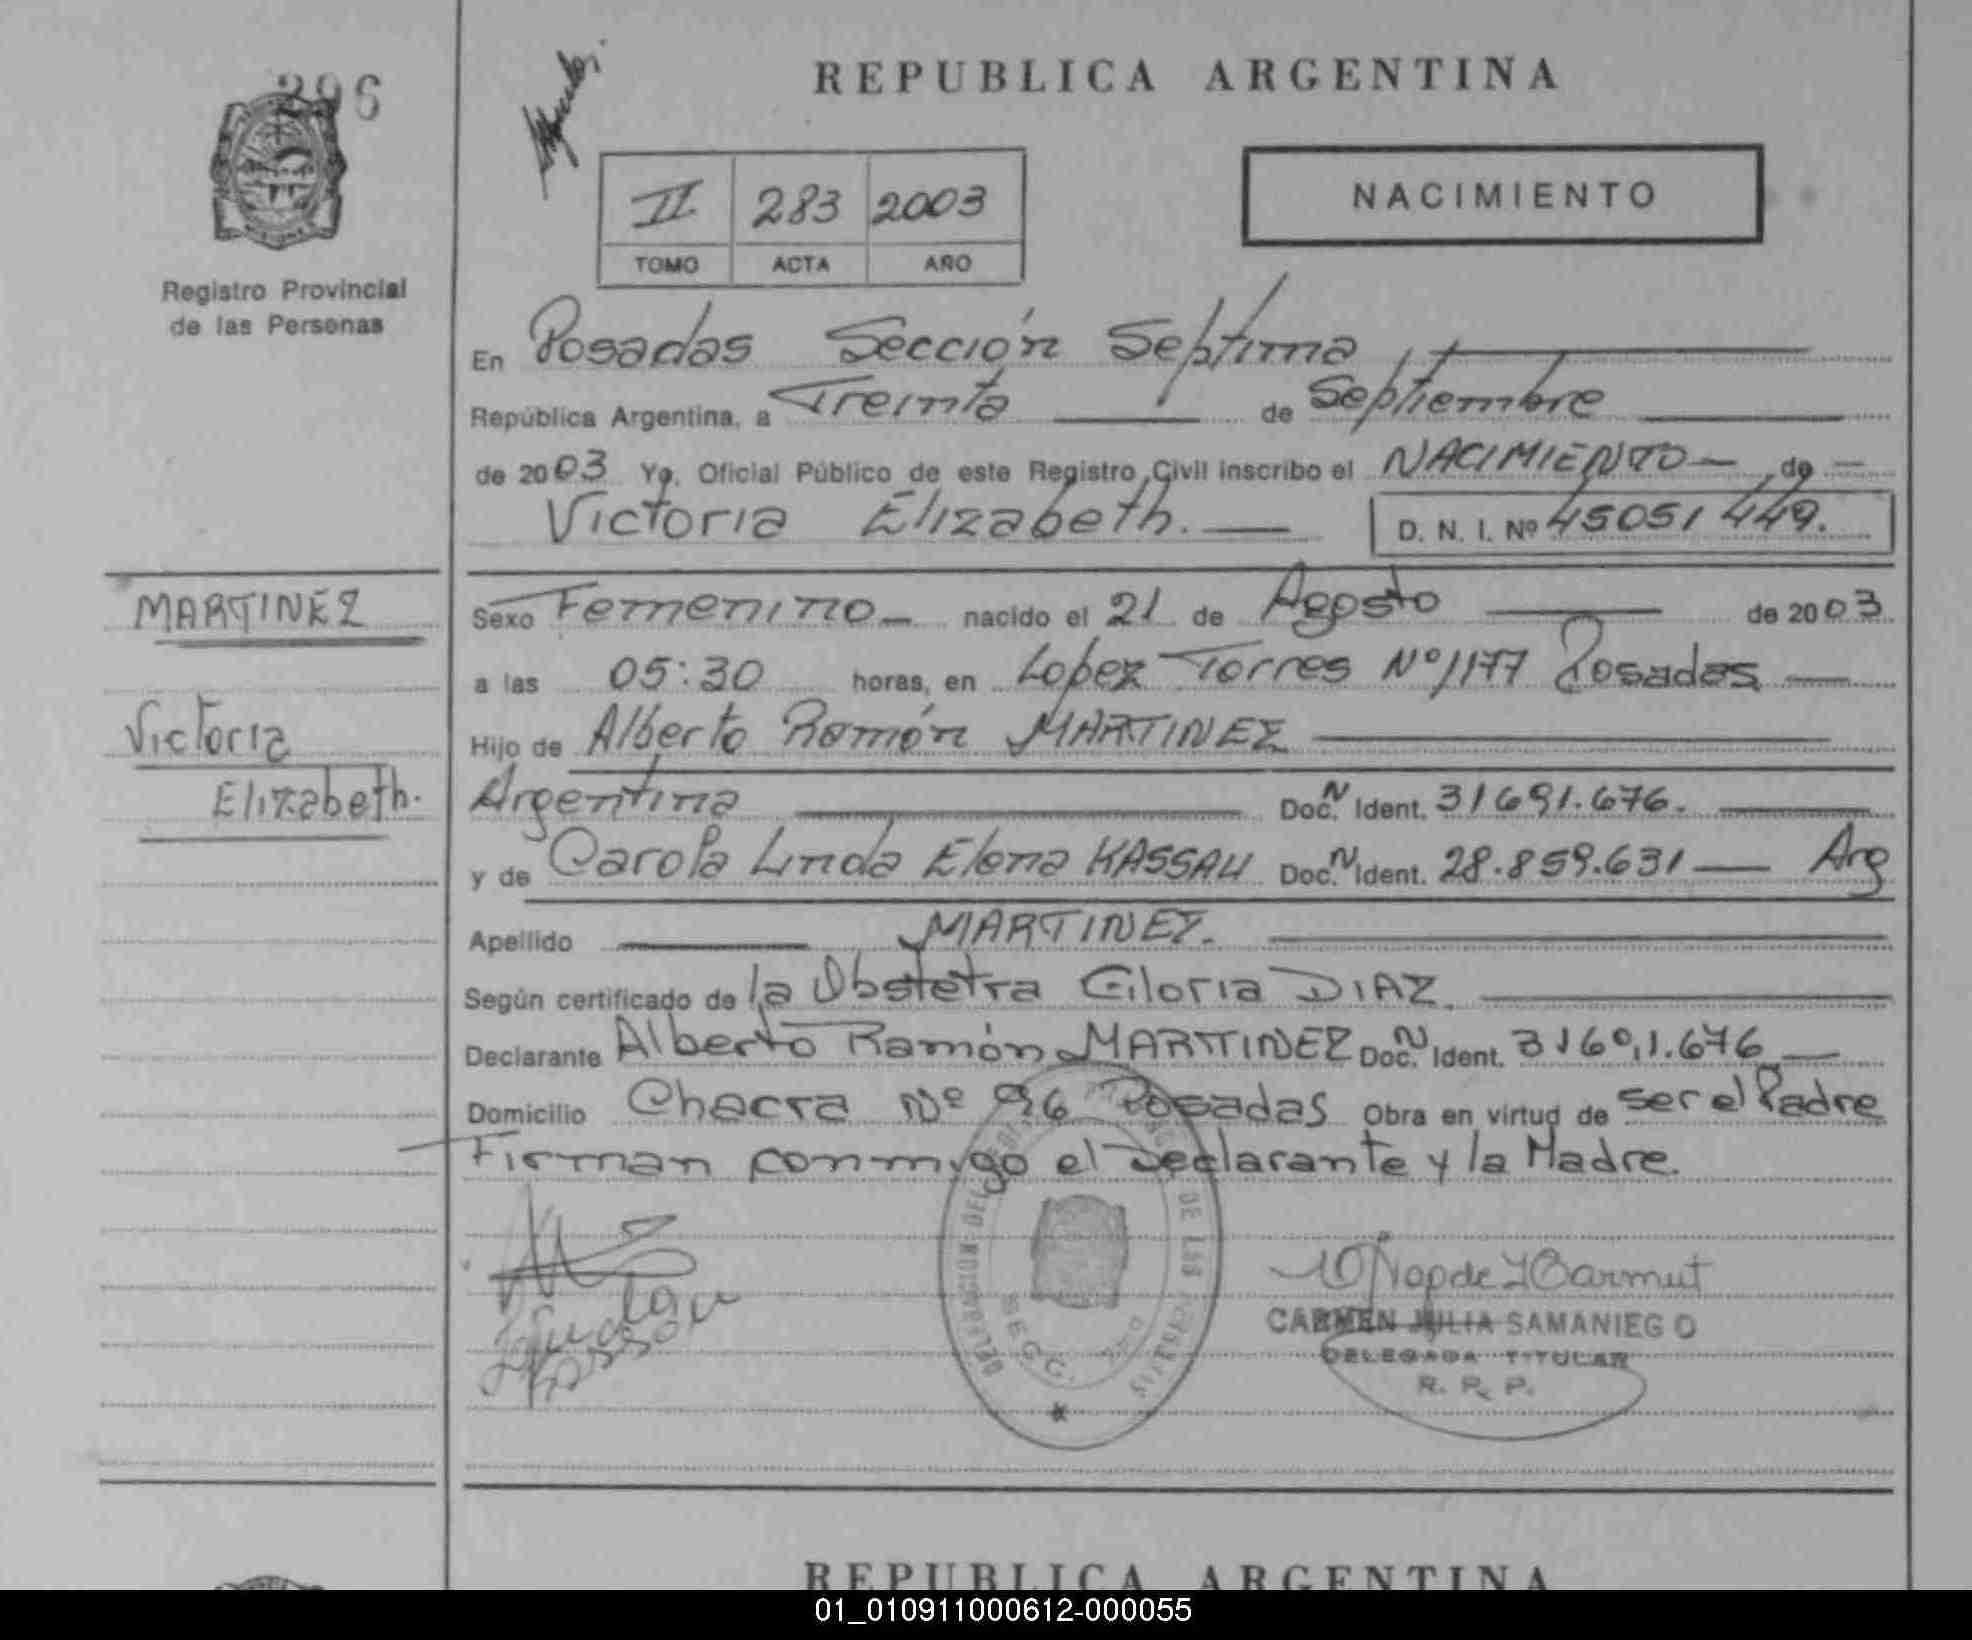 296
REPUBLICA ARGENTINA
II 283 2003
TOMO ACTA AÑO
NACIMIENTO
Registro Provincial
de las Personas
En Posadas Sección Septima
República Argentina, a Treinta de Septiembre
de 2003 Yo, Oficial Público de este Registro Civil inscribo el NACIMIENTO de
Victoria Elizabeth. D. N. I. Nº 45051449.
MARTINEZ
Victoria
Elizabeth.
Sexo Femenino nacido el 21 de Agosto de 2003
a las 05:30 horas, en Lopez Torres Nº 1177 Posadas
Hijo de Alberto Ramón MARTINEZ
Argentina Doc. N Ident. 31691.676.
y de Carola Linda Elena KASSAU Doc. N Ident. 28.859.631 Arg
Apellido MARTINEZ.
Según certificado de la Obstetra Gloria DIAZ.
Declarante Alberto Ramón MARTINEZ Doc. N Ident. 31691.676
Domicilio Chacra Nº 96 Posadas Obra en virtud de ser el Padre
Firman conmigo el Declarante y la Madre.
DELEGACION DE LAS
SECC
CARMEN JULIA SAMANIEGO
DELEGADA TITULAR
R. P. P.
REPUBLICA ARGENTINA
01_010911000612-000055